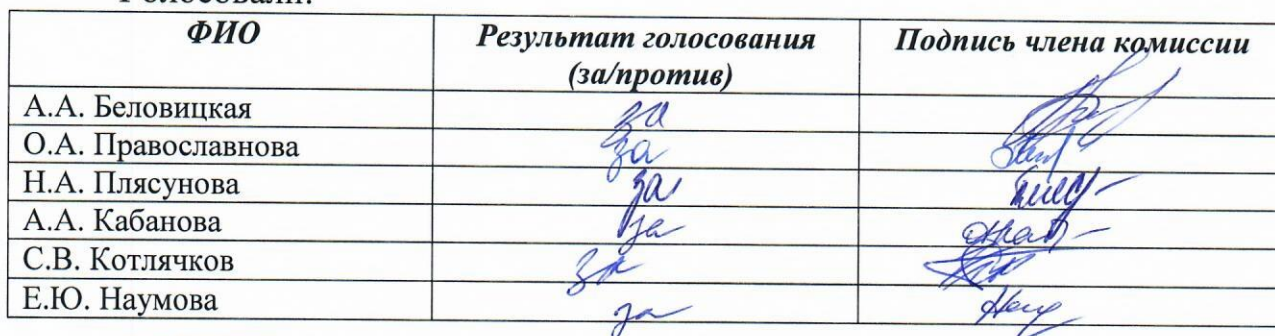 Голосовали:
ФИО Результат голосования (за/против) Подпись члена комиссии
А.А. Беловицкая за
О.А. Православнова за
Н.А. Плясунова за
А.А. Кабанова за
С.В. Котлячков за
Е.Ю. Наумова за